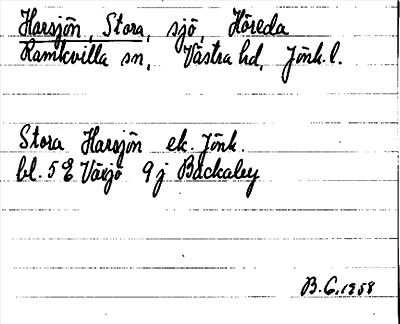 Harsjön, Stora, sjö, Höreda
Ramkvilla sn, Västra hd, Jönk.l.
Stora Harsjön ek. Jönk.
bl. 5 E Växjö 9 j Backaby
B.G. 1958